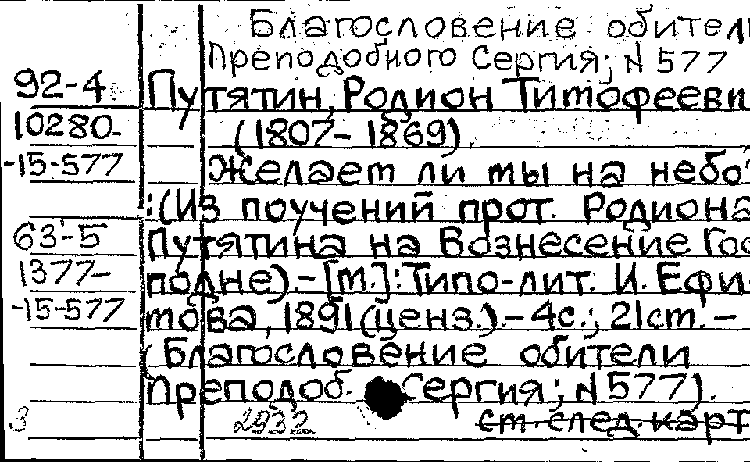 Благословение обители
Преподобного Сергия; N 577
92-4 Путятин, Родион Тимофееви
10280- (1807-1869).
-15-577 Желает ли мы на небо?
:(Из поучений прот. Родиона
63-5 Путятина на Вознесение Гос
1377- подне).-[М.]: Типо-лит. И. Ефи-
-15-577 мова, 1891 (ценз.).- 4с.; 21см. -
(Благословение обители
Преподоб. Сергия; N 577).
3 2932 см. след. карт